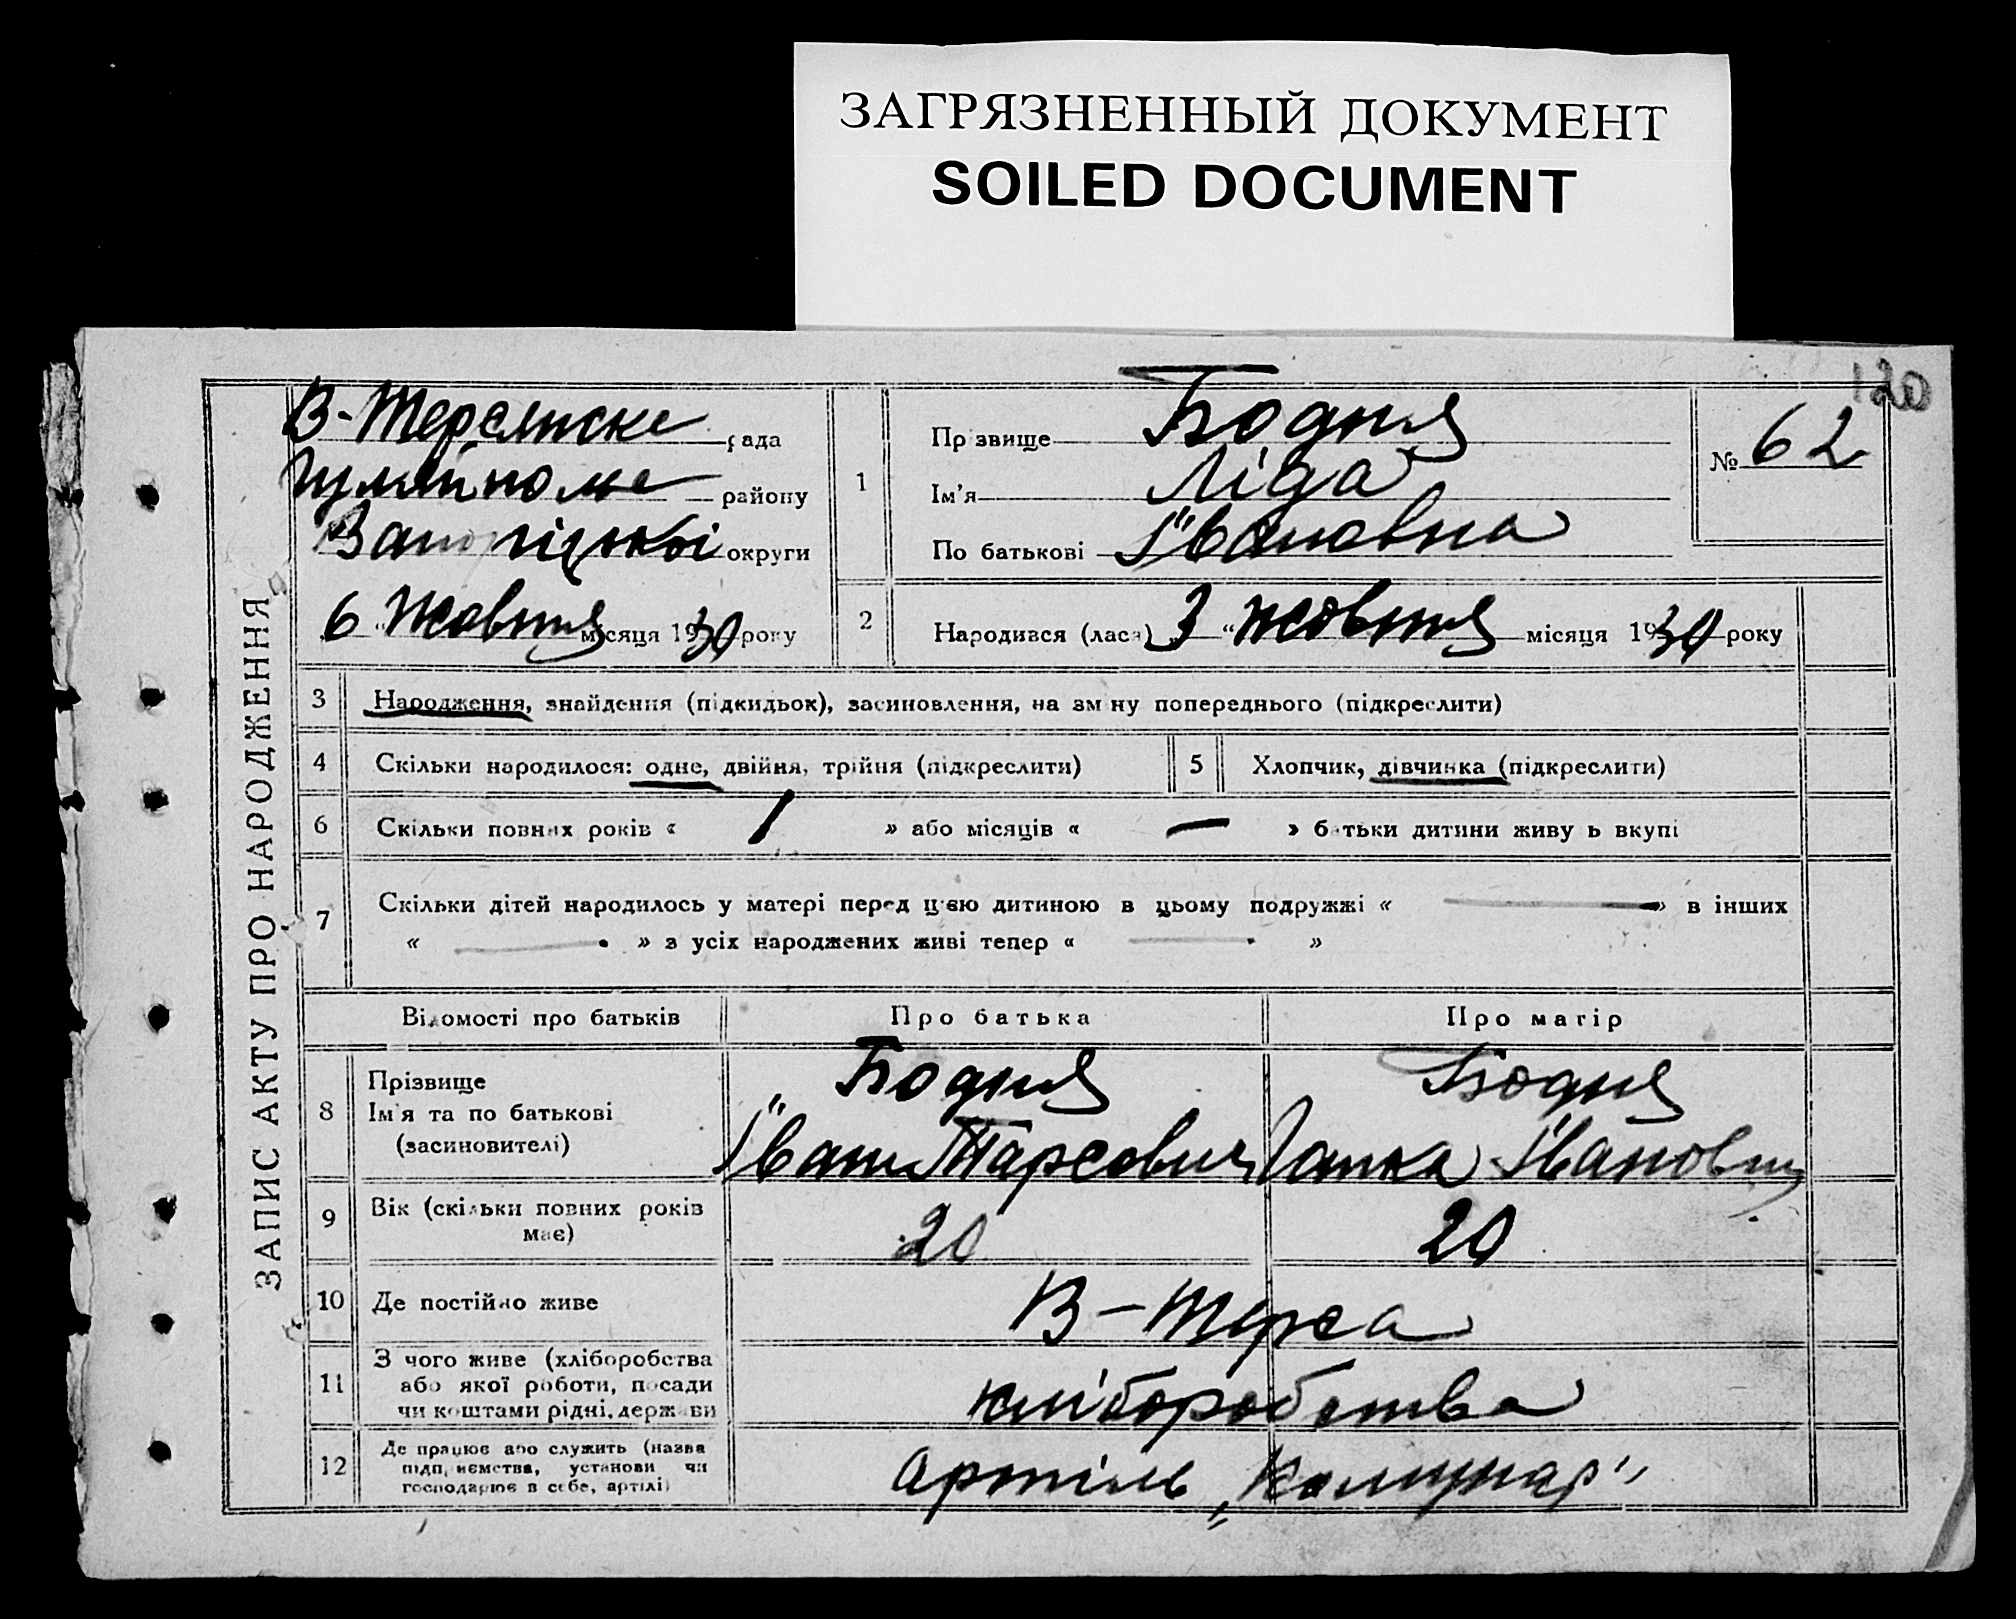 ЗАГРЯЗНЕННЫЙ ДОКУМЕНТ
SOILED DOCUMENT
120
ЗАПИС АКТУ ПРО НАРОДЖЕННЯ
В-Терсянське рада
району
Запоріцької округи
6 " Жовтня місяця 1930 року
1
Прізвище Бодня
Ім'я Ліда
По батькові Івановна
№ 62
2 Народився (лася) 3 " жовтня місяця 1930 року
3 Народження, знайдення (підкидьок), засиновлення, на зміну попереднього (підкреслити)
4 Скільки народилося: одне, двійня, трійня (підкреслити)
5 Хлопчик, дівчинка (підкреслити)
6 Скільки повних років « 1 » або місяців « — » батьки дитини живуть вкупі
7 Скільки дітей народилось у матері перед цією дитиною в цьому подружжі « — » в інших
« — » з усіх народжених живі тепер « — »
Відомості про батьків Про батька Про матір
8 Прізвище Бодня Бодня
Ім'я та по батькові Іван Тарсович Ганка Іванович
(засиновителі)
9 Вік (скільки повних років має) 20 20
10 Де постійно живе В-Терса
11 З чого живе (хліборобства
або якої роботи, посади
чи коштами рідні, держави хліборобства
12 Де працює або служить (назва
підприємства, установи чи
господарює в себе, артілі) Артіль „Комунар"